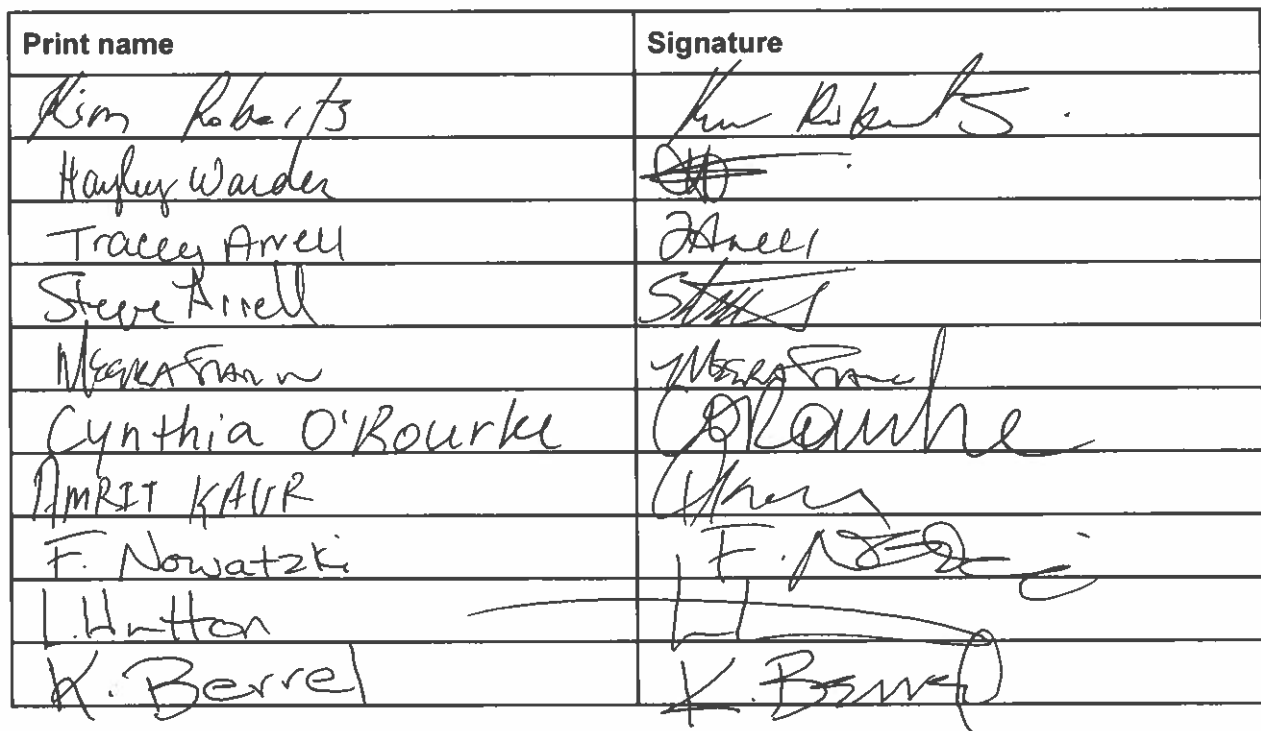 Print name Signature
Kim Roberts Kim Roberts
Hayley Warder
Tracey Arrell JArrell
Steve Arrell
MEERA
Cynthia O'Rourke CORourke
AMRIT KAUR
F. Nowatzki F.
L. Hutton LH
K. Berrel K. Berrel